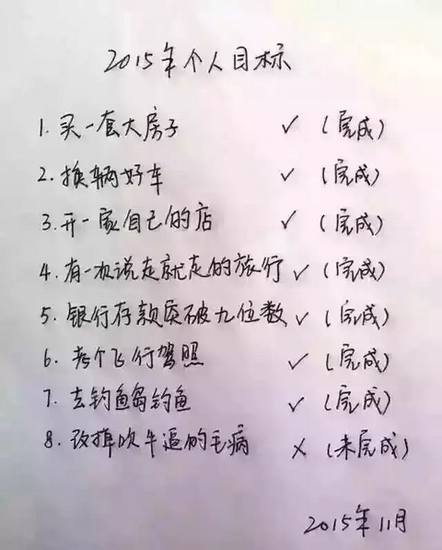 2015年个人目标
1. 买一套大房子 ✓ (完成)
2. 换辆好车 ✓ (完成)
3. 开一家自己的店 ✓ (完成)
4. 有一次说走就走的旅行 ✓ (完成)
5. 银行存款突破九位数 ✓ (完成)
6. 考个飞行驾照 ✓ (完成)
7. 去钓鱼岛钓鱼 ✓ (完成)
8. 改掉吹牛逼的毛病 × (未完成)
2015年11月